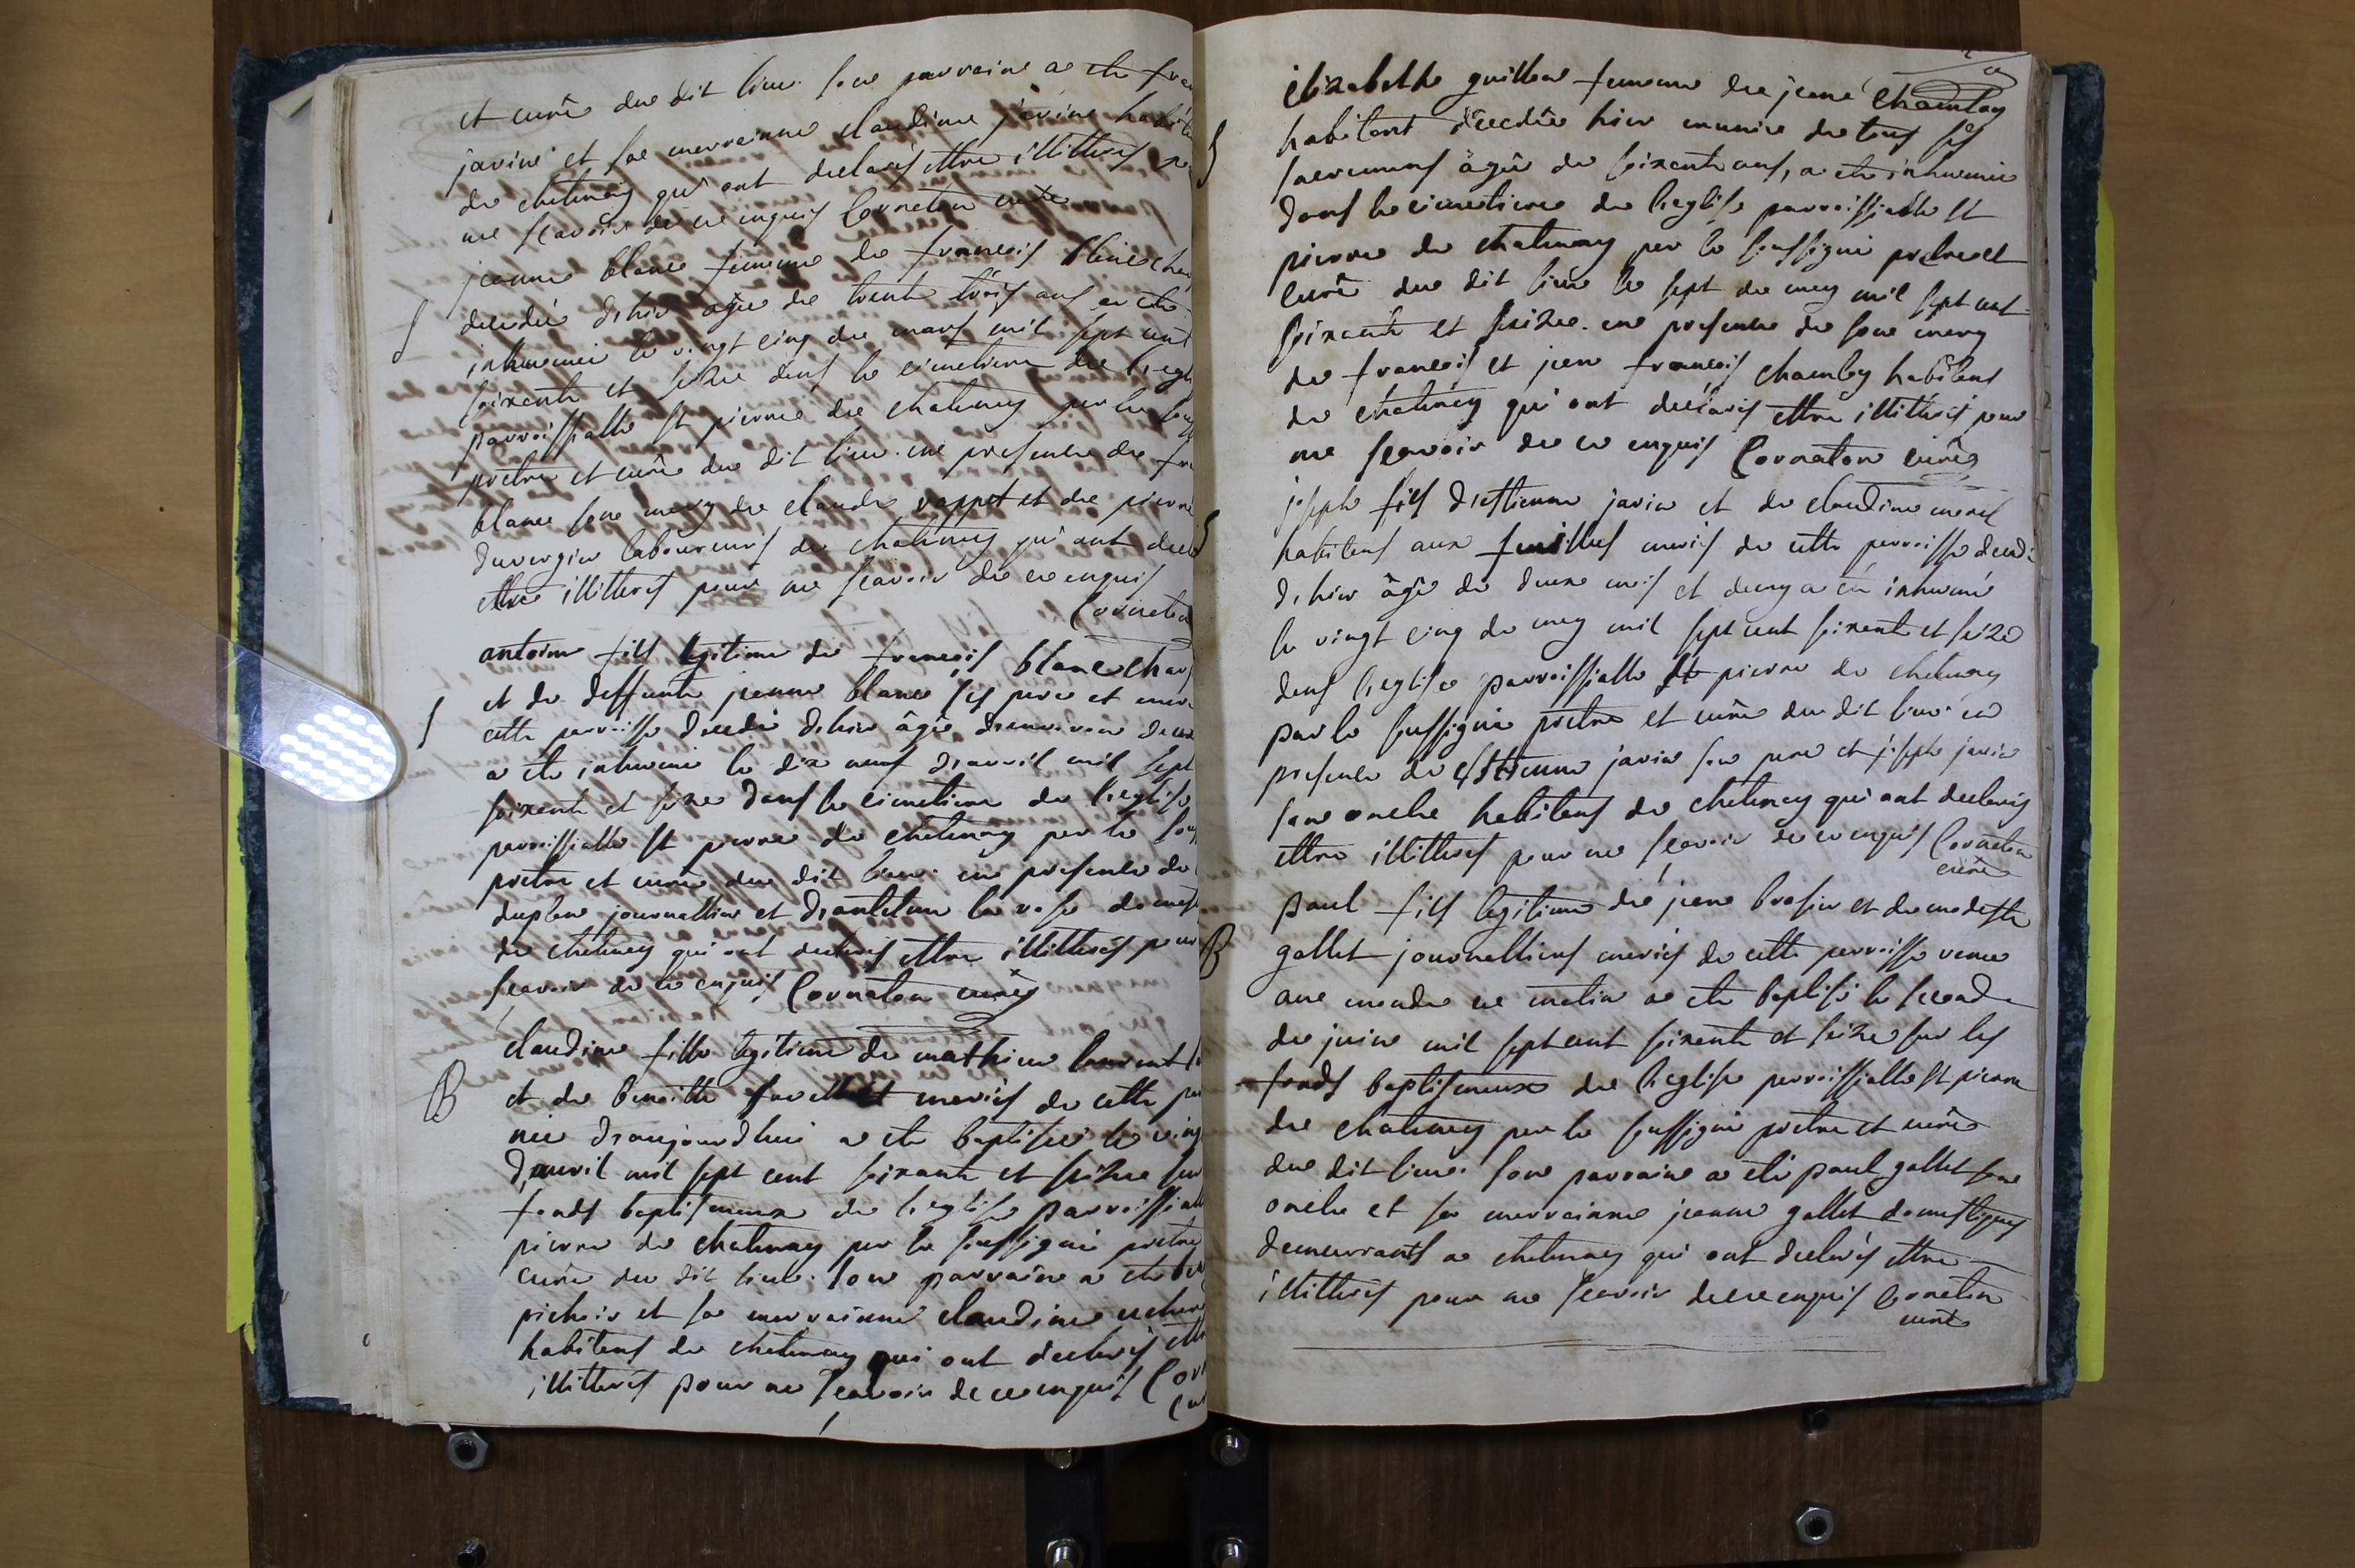 et curé du dit lieu. son parrain a ete
javin et sa marrainne claudine javin
de chatenay qui ont declarés ettre illitterés
ne scavoir de ce enquis Cornaton curé
jeanne blanc femme de francois
S
decedée d'hier agée de trente trois ans a ete
inhumée le vingt cinq de mars mil sept cent
soixante et seize dans le cimetiere de l'egl
parroissialle st pierre de chatenay par le
prêtre et curé du dit lieu. en presence de
blanc son mary de claude rappet et de pierre
duvergier laboureurs de chatenay qui ont
ettre illitterés pour ne scavoir de ce enquis
Cornaton
antoine fils legitime de francois blanc
et de deffunte jeanne blanc ses pere et mere
S
cette parroisse decedé d'hier âgé d'environ
a ete inhumé le dix neuf d'avril mil sept
soixante et seize dans le cimetiere de l'eglise
parroissialle st pierre de chatenay par le
prêtre et curé du dit lieu. en presence de
journallier et
de chatenay qui ont declarés ettre illitterés pour
scavoir de ce enquis Cornaton curé
claudine fille legitime de mathieu laurent
B
et de benoitte mariés de cette
née d'aujourdhui a ete baptisée le
d'avril mil sept cent soixante et seize sur
fonds baptismaux de l'eglise parroissiall
pierre de chatenay par le soussigné prêtre
curé du dit lieu. son parrain a ete
et sa marrainne claudine
habitans de chatenay qui ont declarés
illitterés pour ne scavoir de ce enquis
Elizabeth femme de jean chamlay
S
habitant décedée hier munie de tous ses
sacremens âgée de soixente ans, a ete inhumée
dans le cimetiere de l'eglise parroissialle st
pierre de chatenay par le soussigné prêtre et
curé du dit lieu le sept de may mil sept cent
soixante et seize. en presence de son mary
de francois et jean francois chamlay habitans
de chatenay qui ont declarés ettre illitterés pour
ne scavoir de ce enquis Cornaton curé
S
joseph fils d'ettienne javin et de claudine
habitans aux mariés de cette parroisse decedé
d'hier âgé de deux mois et demy a eté inhumé
le vingt cinq de may mil sept cent soixente et seize
dans l'eglise parroissialle st pierre de chatenay
par le soussigné prêtre et curé du dit lieu en
presence de Ettienne javin son pere et joseph javin
son oncle habitans de chatenay qui ont declarés
ettre illitterés pour ne scavoir de ce enquis Cornaton
curé
paul fils legitime de jean brosier et de modeste
B
gallet journalliers mariés de cette parroisse venu
au monde ce matin a ete baptisé le second
de juin mil sept cent soixante et seize sur les
fonds baptismaux de l'eglise parroissialle st pierre
de chatenay par le soussigné prêtre et curé
du dit lieu. son parrain a eté paul gallet son
oncle et sa marrainne jeanne gallet domestiques
demeurants a chatenay qui ont declarés ettre
illitterés pour ne scavoir de ce enquis Cornaton
curé